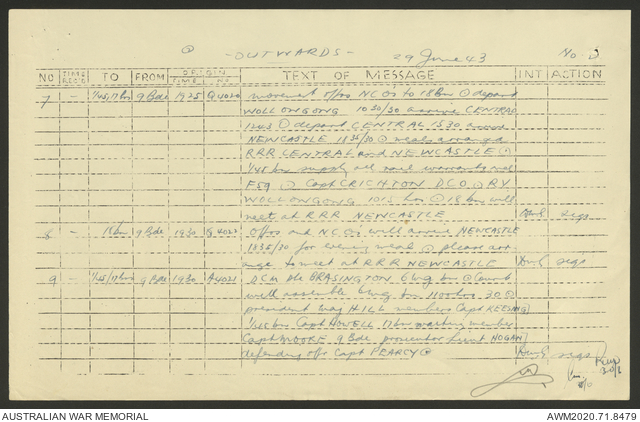 Q - OUTWARDS - 29 June 43 No. D
NO TIME REC'D TO FROM ORIGIN TIME NO TEXT OF MESSAGE INT ACTION
7 - 1/45, 17 bn 9 Bde 1925 Q4020 movement offrs NCOs to 18 bn @ depart
WOLLONGONG 1030/30 arrive CENTRAL
1243 @ depart CENTRAL 1530 arrive
NEWCASTLE 1835/30 @ meals arranged
RRR CENTRAL and NEWCASTLE @
1/45 bn supply all rail warrants and
F59 @ Capt CRICHTON DCO @ RV
WOLLONGONG 1015 hrs @ 18 bn will
meet at RRR NEWCASTLE sigs
8 - 18 bn 9 Bde 1930 Q4022 Offrs and NCOs will arrive NEWCASTLE
1835/30 for evening meal @ please arr
ange to meet at RRR NEWCASTLE sigs
9 - 1/45/17 bns 9 Bde 1930 A4021 DCM Pte BRASINGTON 6 bn @ Court
will assemble 6 bn 1100 hrs 30 @
president Maj HILL members Capt KEEPING
1/45 bn Capt HOWELL 17 bn waiting member
Capt MOORE 9 Bde prosecutor Lieut HOGAN
defending offr Capt PEARCY @ sigs
30/6
AUSTRALIAN WAR MEMORIAL AWM2020.71.8479